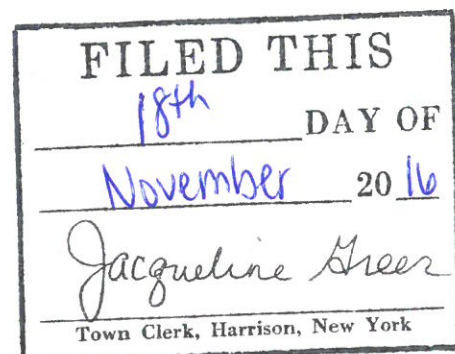 FILED THIS
18th DAY OF
November 20 16
Jacqueline Greer
Town Clerk, Harrison, New York